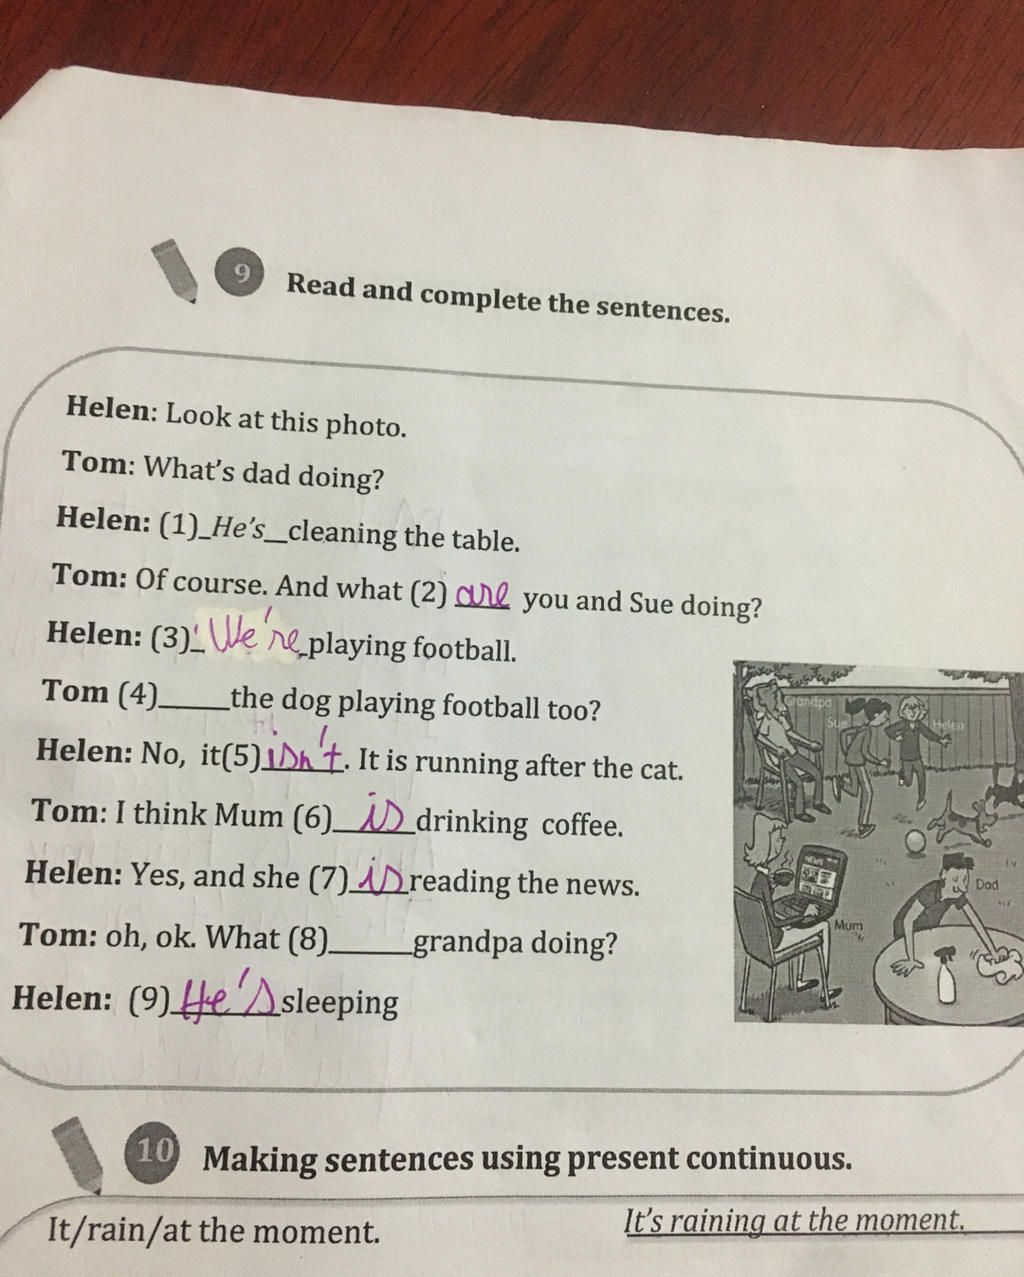 9 Read and complete the sentences.
Helen: Look at this photo.
Tom: What's dad doing?
Helen: (1)_He's_cleaning the table.
Tom: Of course. And what (2) are you and Sue doing?
Helen: (3)_We're_playing football.
Tom (4)_____the dog playing football too?
Helen: No, it(5)isn't. It is running after the cat.
Tom: I think Mum (6)__is__drinking coffee.
Helen: Yes, and she (7)_is_reading the news.
Tom: oh, ok. What (8)______grandpa doing?
Helen: (9)_He's_sleeping
Grandpa
Sue
Helen
NEWS
Dad
Mum
10 Making sentences using present continuous.
It/rain/at the moment. It's raining at the moment.